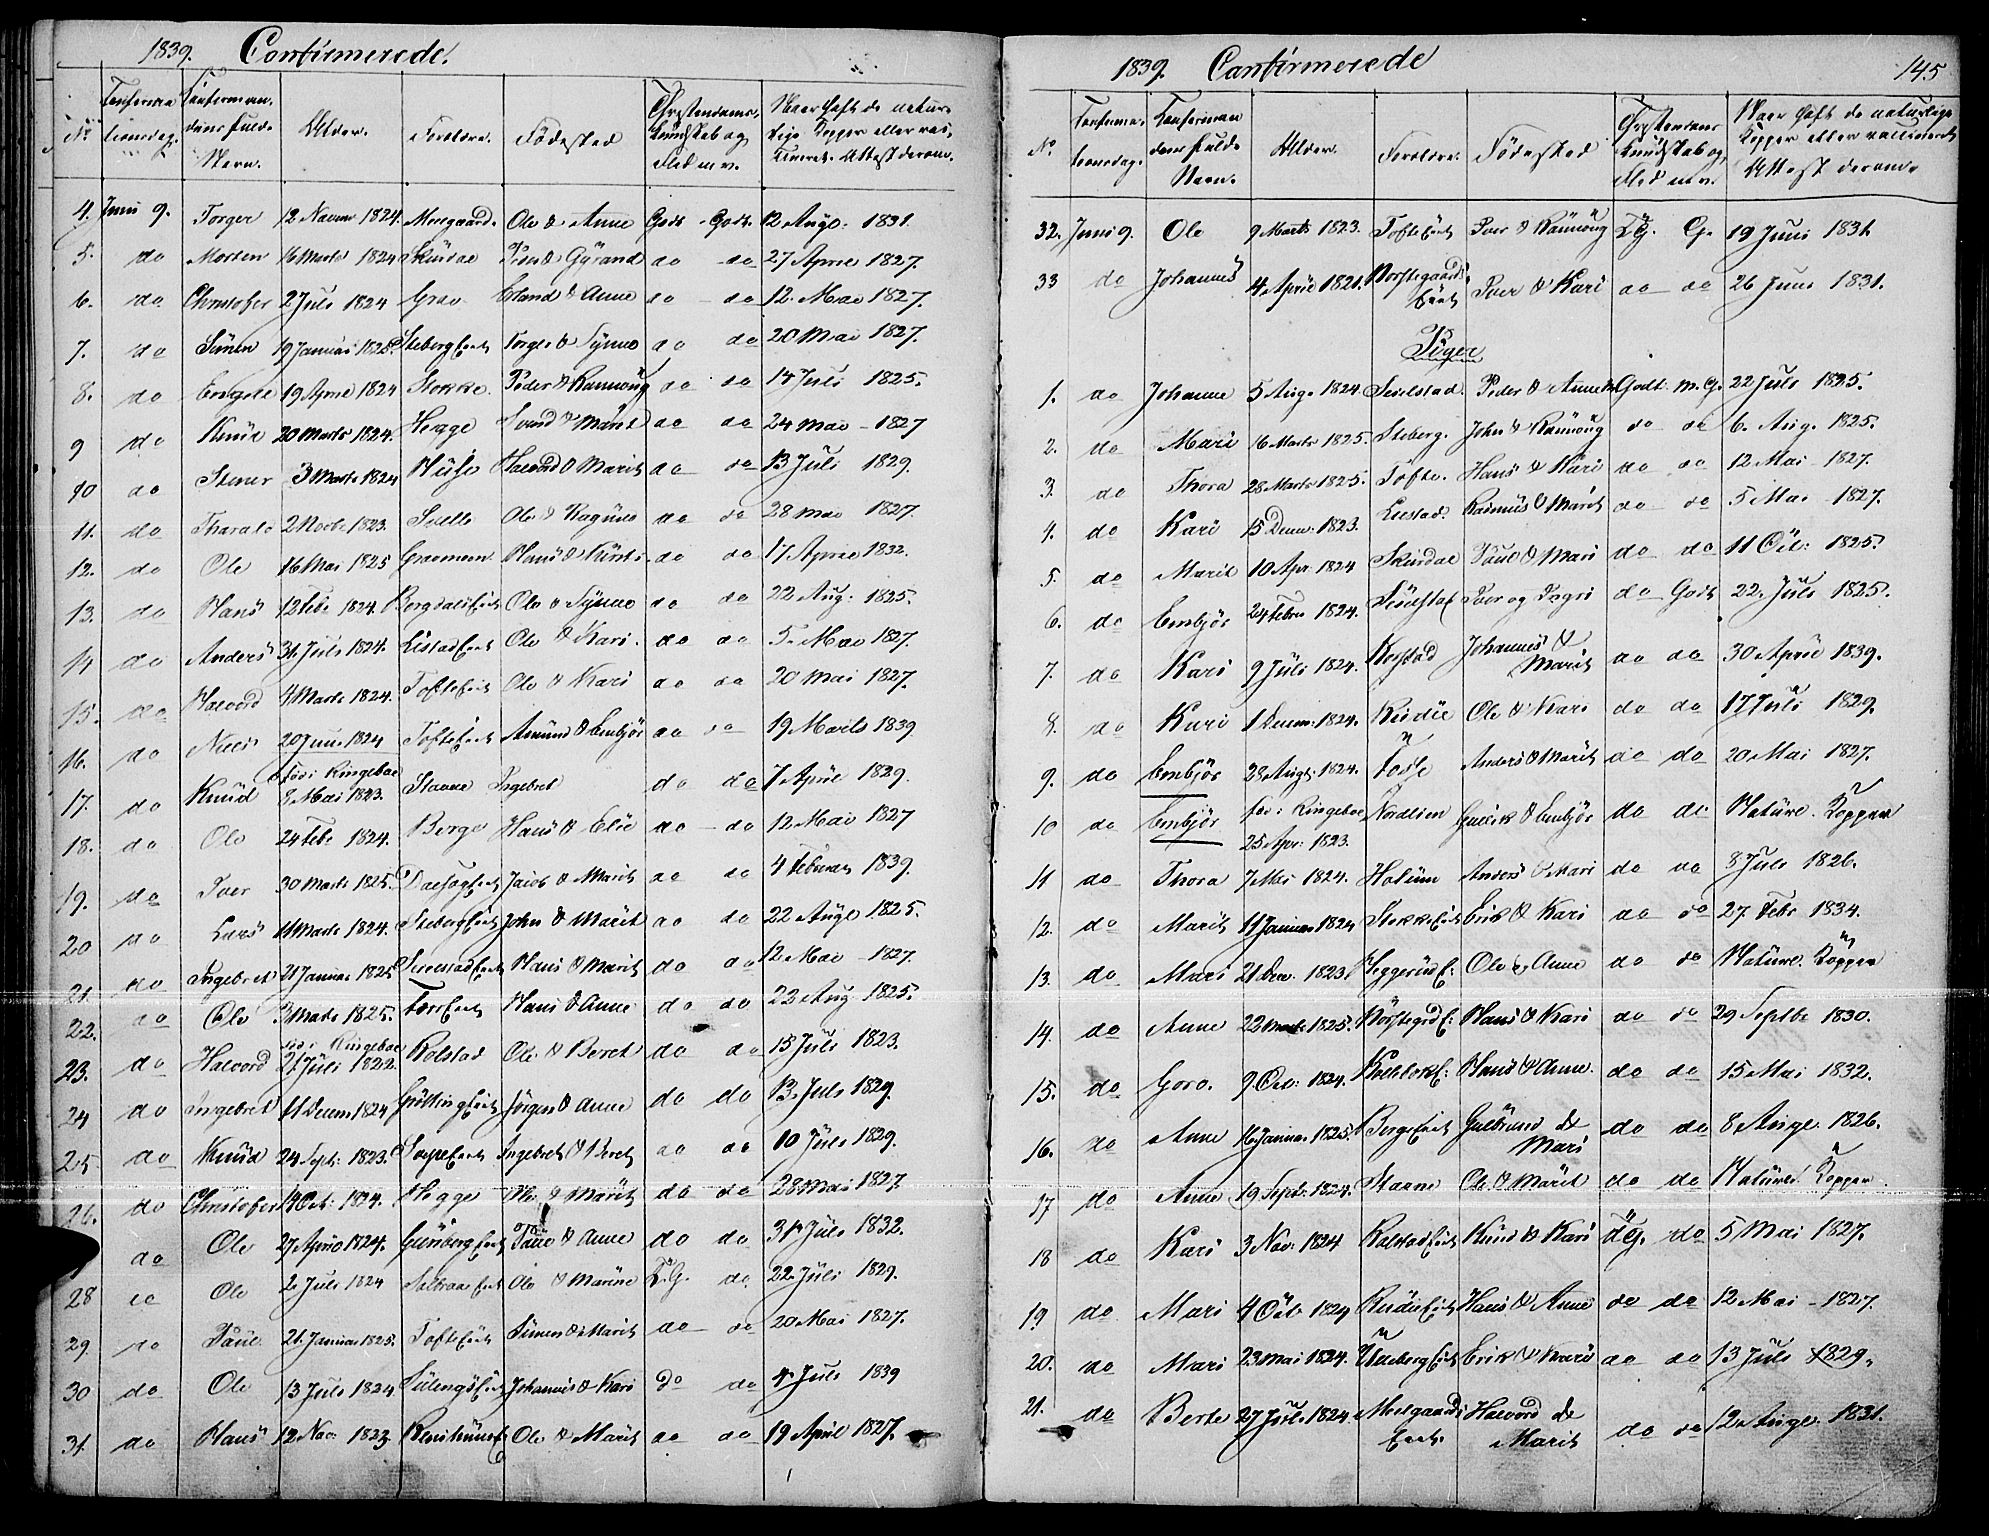 1839. Confirmerede.
No Confirma tionsdag. Confirman dens fulde Navn. Alder. Forældre. Födested Christendoms Kundskab og Flid m.v. Naar havt de natur lige Kopper eller vac cineret. Attest derom.
4. Juni 9. Torger 12 Novem 1824. Moegaard. Ole & Anne Godt - Godt. 12 Aug: 1831.
5. do Morten 16 Marts 1824 Skurdal Peder & Gurand do - do 27 April 1827.
6. do Christofer 2 Juli 1824 Grav Erland & Anne do - do 12. Mai 1827.
7. do Simen 19 Januari 1825. Steberg Eiet Torger & Synne do do 20 Mai 1827.
8. do Engebret 19 April 1824 Stokke. Peder & Rannoug do do 14 Juli 1825.
9 do Knud 20 Marts 1824. Hegge Svend & Marit do do 24 Mai - 1827
10 do Stener 3 Marts 1824 Huse Halvord & Marit do do 13 Juli 1829.
11. do Tharald 2 Octb. 1823. Svelle Ole & Ragne do do 28 Mai 1827
12. do Ole 16 Mai 1825 Hans & do do 17 April 1832.
13. do Hans 12 Febr 1824. Bergdals Eiet Ole & Synne do do 22 Aug: 1825.
14 do Anders 31 Juli 1824. Listad Eiet Ole & Kari. do do 5. Mai 1827.
15. do Halvord 4 Marts 1824. Tofte Eiet Ole & Kari do do 20 Mai 1827.
16. do Niels 20 Juni 1824 Tofte Eiet Amund & Embjör do do 19 Marts 1839
17. do Knud föd i Ringeboe 8 Mai 1823. Stavne Ingebret do do 7 April 1829.
18. do Ole 24 Febr. 1824. Berge Hans & Elie do - do 12 Mai 1827
19. do Iver 30 Marts 1825. Eiet Jacob & Marit do do 4 Februar 1839.
20 do Lars 11 Marts 1824. Steberg Eiet John & Marit do do 22 Aug 1825.
21. do Ingebret 21 Januar 1825 Eiet Hans & Marit do do 12 Mai - 1827.
22. do Ole 3 Marts 1825. Eiet Hans & Anne do do 22 Aug 1825.
23. do Halvord föd i Ringeboe 21 Juli 1822. Rolstad Ole & Beret do do 15 Juli 1823.
24 do Ingebret 11 Decem 1824 Eiet Jörgen & Anne do do 13. Juli 1829.
25 do Knud 24 Sept: 1823. Eiet Ingebret & Beret do do 10 Juli 1829.
26. do Christofer 14 Oct: 1824. Hegge Ole & Marit do do 28 Mai 1827
do Ole 27 April 1824. Eiet Paul & Anne do do 31 Juli 1832.
28 do Ole 2 Juli 1824 Eiet Ole & Marine T.G. do. 22. Juli 1829.
29. do Paul 21. Januar 1825. Tofte Eiet Simen & Marit do do 20 Mai 1827.
30 do Ole 13 Juli 1824 Eiet Johannes & Kari do do 4 Juli 1839
31. do Hans 12 Nov: 1823 Ole & Marit do do 19 April 1827.
1839. Confirmerede 145
No Confirma tionsdag. Confirman dens fulde Navn. Alder. Forældre. Födested Christendoms Kundskab og Flid m.v. Naar havt de naturlige Kopper eller vaccineret Attest derom.
32. Juni 9. Ole 9 Marts 1823. Tofte Eiet Iver & Rannoug T.G. G. 19 Juni 1831.
33 do Johannes 4 April 1821. Norstegaards Eiet Iver & Kari do do 26 Juni 1831.
Piger
1. do Johanne 5 Aug. 1824. Peder & Anne Godt. m. G. 22 Juli 1825.
2. do Mari 16 Marts 1825. Steberg. John & Rannoug do do 6. Aug. 1825.
3. do Thora 28 Marts 1825. Tofte. Hans & Kari do do 12 Mai - 1827.
4. do Kari 15 Decem. 1823. Listad. Rasmus & Marit do do 5 Mai 1827.
5. do Marit 10 Apr. 1824 Skurdal Paul & Mari do do 11 Oct: 1825.
6. do Embjör 24 Febr 1824. Iver og do Godt 22. Juli 1825.
7. do Kari 9 Juli 1824. Korstad Johannes & Marit do do 30 April 1839.
8. do Kari 1 Decem. 1824. Ole & Kari do do 17 Juli 1829.
9. do Embjör 28 Aug. 1824. Anders & Marit do do 20 Mai 1827.
10 do Embjör föd i Ringeboe 25 Apr. 1823. Nordlien & Embjör do do Naturl. Kopper
11 do Thora 7 Mai 1824. Anders & Mari do do 8 Juli 1826.
12. do Marit 11 Januar 1824 Stokke Eiet Erik & Kari do do 27. Febr 1834.
13. do Mari 21 Dec. 1823. Heggerud E: Ole & Anne do do Naturl. Kopper
14. do Anne 22 Marts 1825. Norstegrd E: Hans & Kari do do 29 Septbr 1830.
15. do Goro. 9 Oct: 1824. Hans & Anne do do 15 Mai 1832.
16. do Anne 16 Januar 1825. Berge Eiet Gulbrand & Mari do do 8 Aug. 1826.
17 do Anne 19 Sept. 1824. Stavne Ole & Marit do do Naturl Kopper.
18 do Kari 3 Nov. 1824 Rolstad Eiet Knud & Kari T.G. do 5 Mai 1827.
19. do Mari 4 Oct. 1824 Eiet Hans & Anne do do 12 Mai - 1827.
20. do Mari 23 Mai 1824. Eiet Erik & Mari do do 13 Juli 1829.
21. do Berte 27 Juli 1824. Moegaards Eiet. Halvord & Marit do do 12 Aug. 1831.